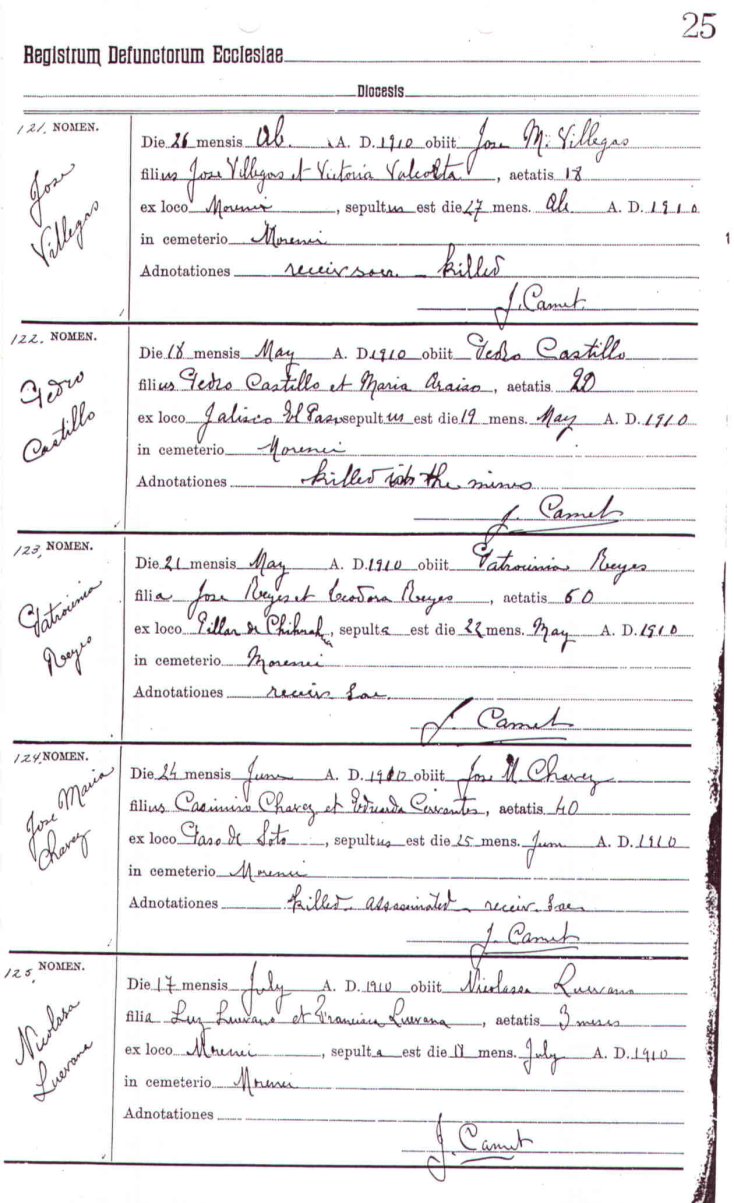 25
Registrum Defunctorum Ecclesiae
Diocesis
121. NOMEN.
Jose
Villegas
Die 26 mensis Ab. A. D. 1910 obiit Jose M. Villegas
filius Jose Villegas et Victoria , aetatis 18
ex loco Morenci , sepultus est die 27 mens. Ab A. D. 1910
in cemeterio Morenci
Adnotationes killed
J. Camet.
122. NOMEN.
Pedro
Castillo
Die 18 mensis May A. D. 1910 obiit Pedro Castillo
filius Pedro Castillo et Maria Araiso, aetatis 20
ex loco Jalisco El Paso sepultus est die 19 mens. May A. D. 1910
in cemeterio Morenci
Adnotationes killed the mines
J. Camet
123, NOMEN.
Patrocinia
Reyes
Die 21 mensis May A. D. 1910 obiit Patrocinia Reyes
filia Jose Reyes et Teodora Reyes , aetatis 60
ex loco Pillar de , sepulta est die 22 mens. May A. D. 1910
in cemeterio Morenci
Adnotationes receiv. Sac.
J. Camet
124, NOMEN.
Jose Maria
Chavez
Die 24 mensis June A. D. 1910 obiit Jose M. Chavez
filius Casimiro Chavez et Eduarda Cervantes, aetatis 40
ex loco Paso de Soto , sepultus est die 25 mens. June A. D. 1910
in cemeterio Morenci
Adnotationes killed assassinated receiv. Sac.
J. Camet
125, NOMEN.
Nicolasa
Luevana
Die 17 mensis July A. D. 1910 obiit Nicolasa Luevana
filia Luz Luevano et Francisca Luevana , aetatis 3 meses
ex loco Morenci , sepulta est die 18 mens. July A. D. 1910
in cemeterio Morenci
Adnotationes
J. Camet